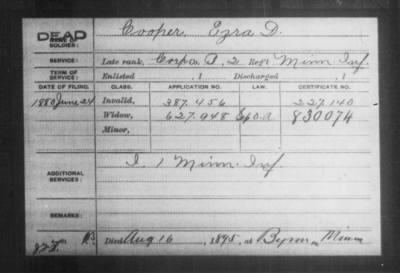 DEAD
NAME OF SOLDIER: Cooper, Ezra D.
SERVICE: Late rank, Corp Co. B, 2 Reg't Minn Inf.
TERM OF SERVICE: Enlisted , 1 Discharged , 1
DATE OF FILING. CLASS. APPLICATION NO. LAW. CERTIFICATE NO.
1880 June 24 Invalid, 387.456 227.140
Widow, 627.948 830074
Minor,
ADDITIONAL SERVICES: I. 1 Minn. Inf.
REMARKS:
Died Aug 16, 1895, at Byron, Minn